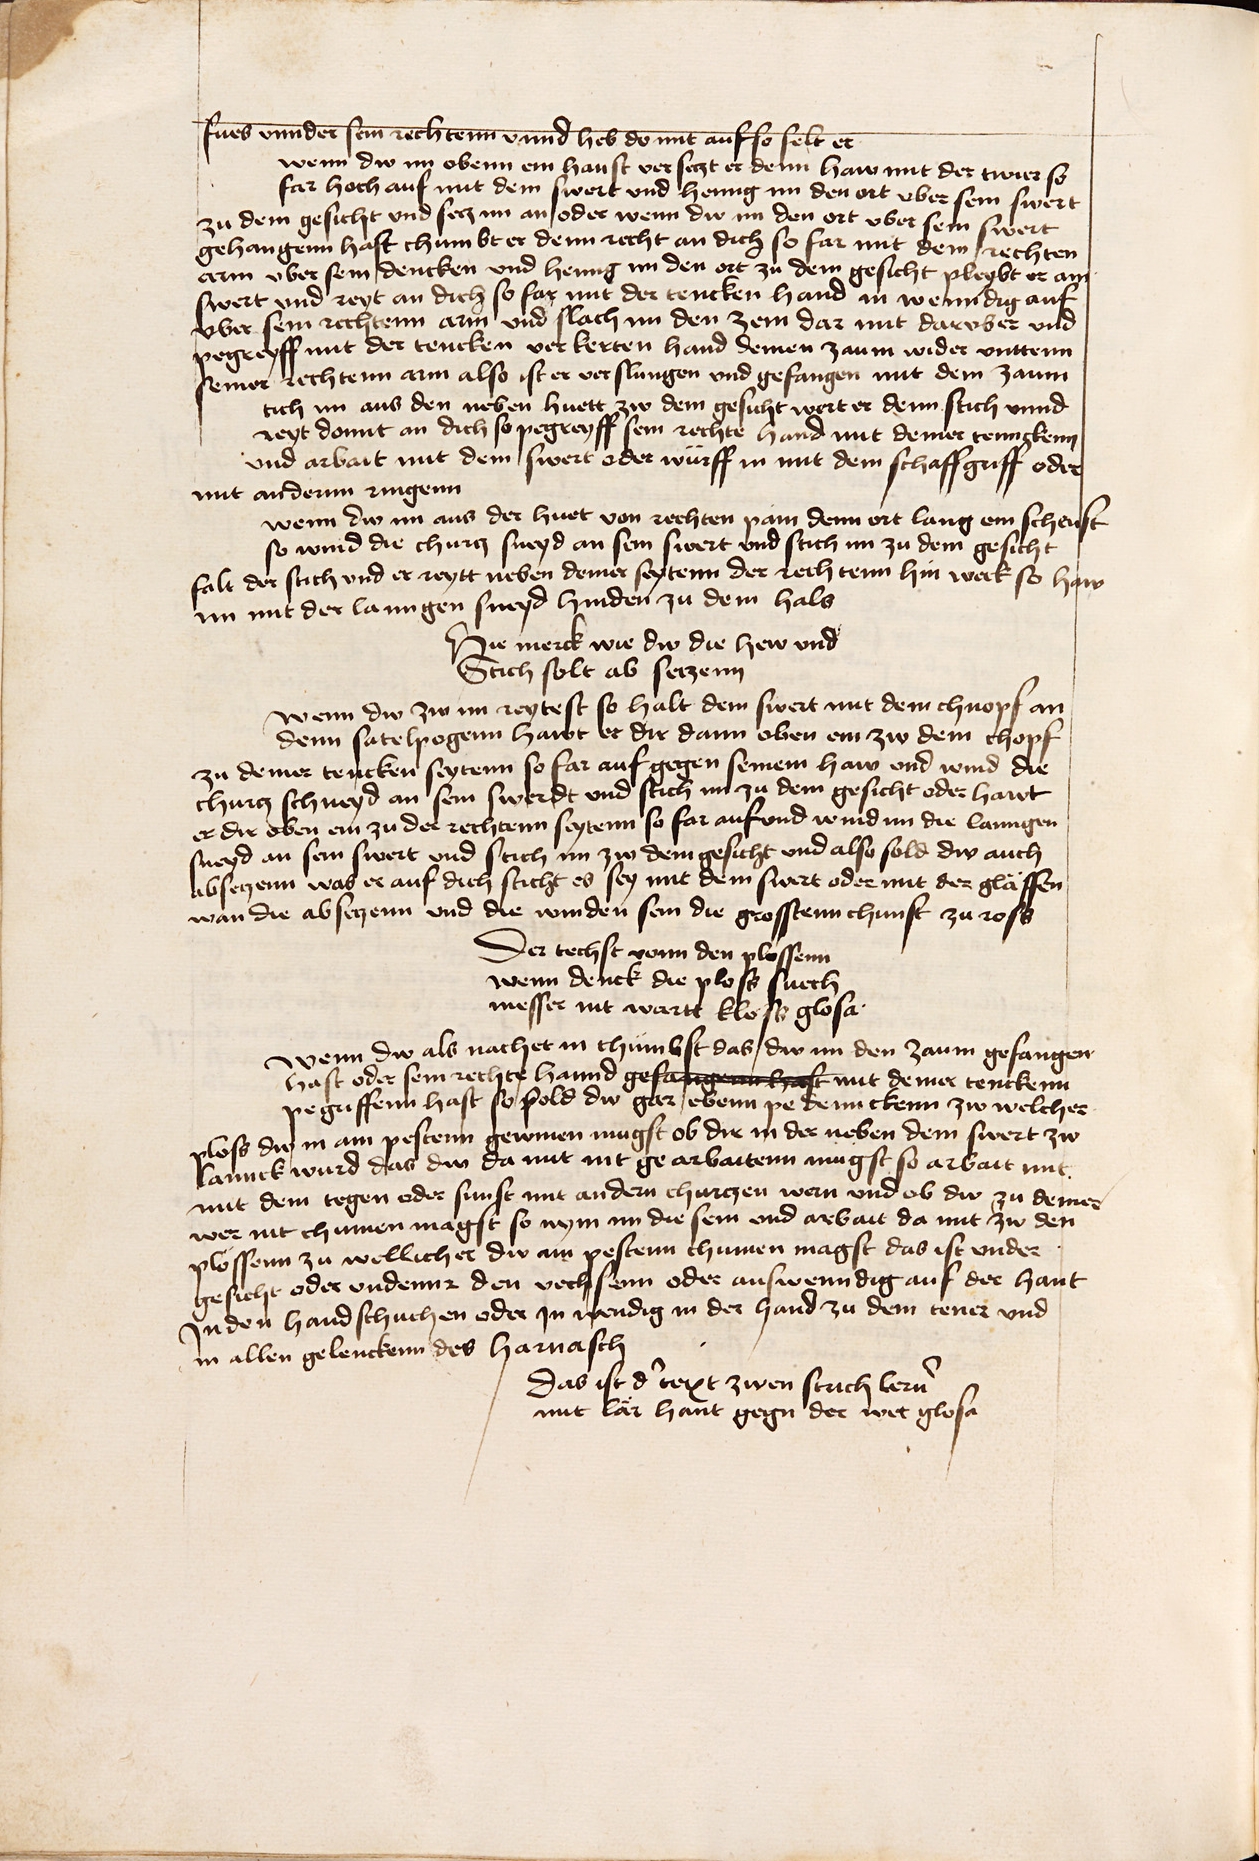 fues vnnder sein rechtenn vnnd heb do mit auf so felt er
wenn dw im obenn ein haust ver seczt er denn haw mit der twier so
far hoch auf mit dem swert vnd henng im den ort vber sein swert
zu dem gesicht vnd secz im an oder wenn dw im den ort vber sein swert
gehangenn hast chumbt er denn recht an dich so far mit dem rechten
arm vber sein dencken vnd henng im den ort zu dem gesicht pleybt er am
swert vnd reyt an dich so far mit der tencken hand in wenndig auf
vber sein rechtenn arm vnd slach im den zem dar mit darvber vnd
pegreyff mit der tencken ver kerten hand deinen zaum wider vnttenn
seiner rechtenn arm also ist er verslungen vnd gefangen mit dem zaum
tich im aus den neben huett zw dem gesicht wert er denn stich vnnd
reyt domit an dich so pegreyff sein rechte hand mit deiner tennckenn
vnd arbait mit dem swert oder würff in mit dem schaffgriff oder
mit anderm ringenn
wenn dw im aus der huet von rechten pain denn ort lang ein scheust
so wind die churcz sneyd an sein swert vnd stich im zu dem gesicht
falt der stich vnd er reytt neben deiner seytenn der rechtenn hin weck so haw
im mit der lanngen sneyd hinden zu dem hals
Hie merck wie dw die hew vnd
Stich solt ab seczenn
wenn dw zw im reytest so halt dein swert mit dem chnopf an
denn satelpogenn hawt er dir dann oben ein zw dem chopf
zu deiner tencken seytenn so far auf gegen seinem haw vnd wind die
churcz schneyd an sein swerdt vnd stich im zu dem gesicht oder hawt
er dir oben ein zu der rechtenn seytenn so far auf vnd wind im die lanngen
sneyd an sein swert vnd stich im zw dem gesicht vnd also sold dw auch
abseczenn was er auf dich sticht es sey mit dem swert oder mit der gläffen
wan die ab seczenn vnd die winden sein die grosstenn chunst zu ross
Der techst vonn den plossenn
wenn denck die ploss suech
messer nit wartt kloss glosa
Wenn dw als nachet in chumbst das dw im den zaum gefangen
hast oder sein rechte hannd gefangenn hast mit deiner tenckenn
pegriffenn hast so sold dw gar ebenn pe denn ckenn zw welcher
ploss dw in am pestenn gewinen mugst ob dir in der neben dein swert zw
lannck wurd das dw da mit nit ge arbaitenn mugst so arbait mit
mit dem tegen oder sunst mit andern churczen wern vnd ob dw zu deiner
wer nit chumen magst so nym im die sein vnd arbait da mit zw den
plössenn zu wellicher dw am pestenn chumen magst das ist vnder
gesicht oder vndenn den vechsenn oder auswenndig auf der hant
In den handschuchen oder In wendig in der hand zu dem tener vnd
in allen gelenckenn des harnasch
Das ist d' text zwen strich lern
mit lär hant gegn der wer glosa